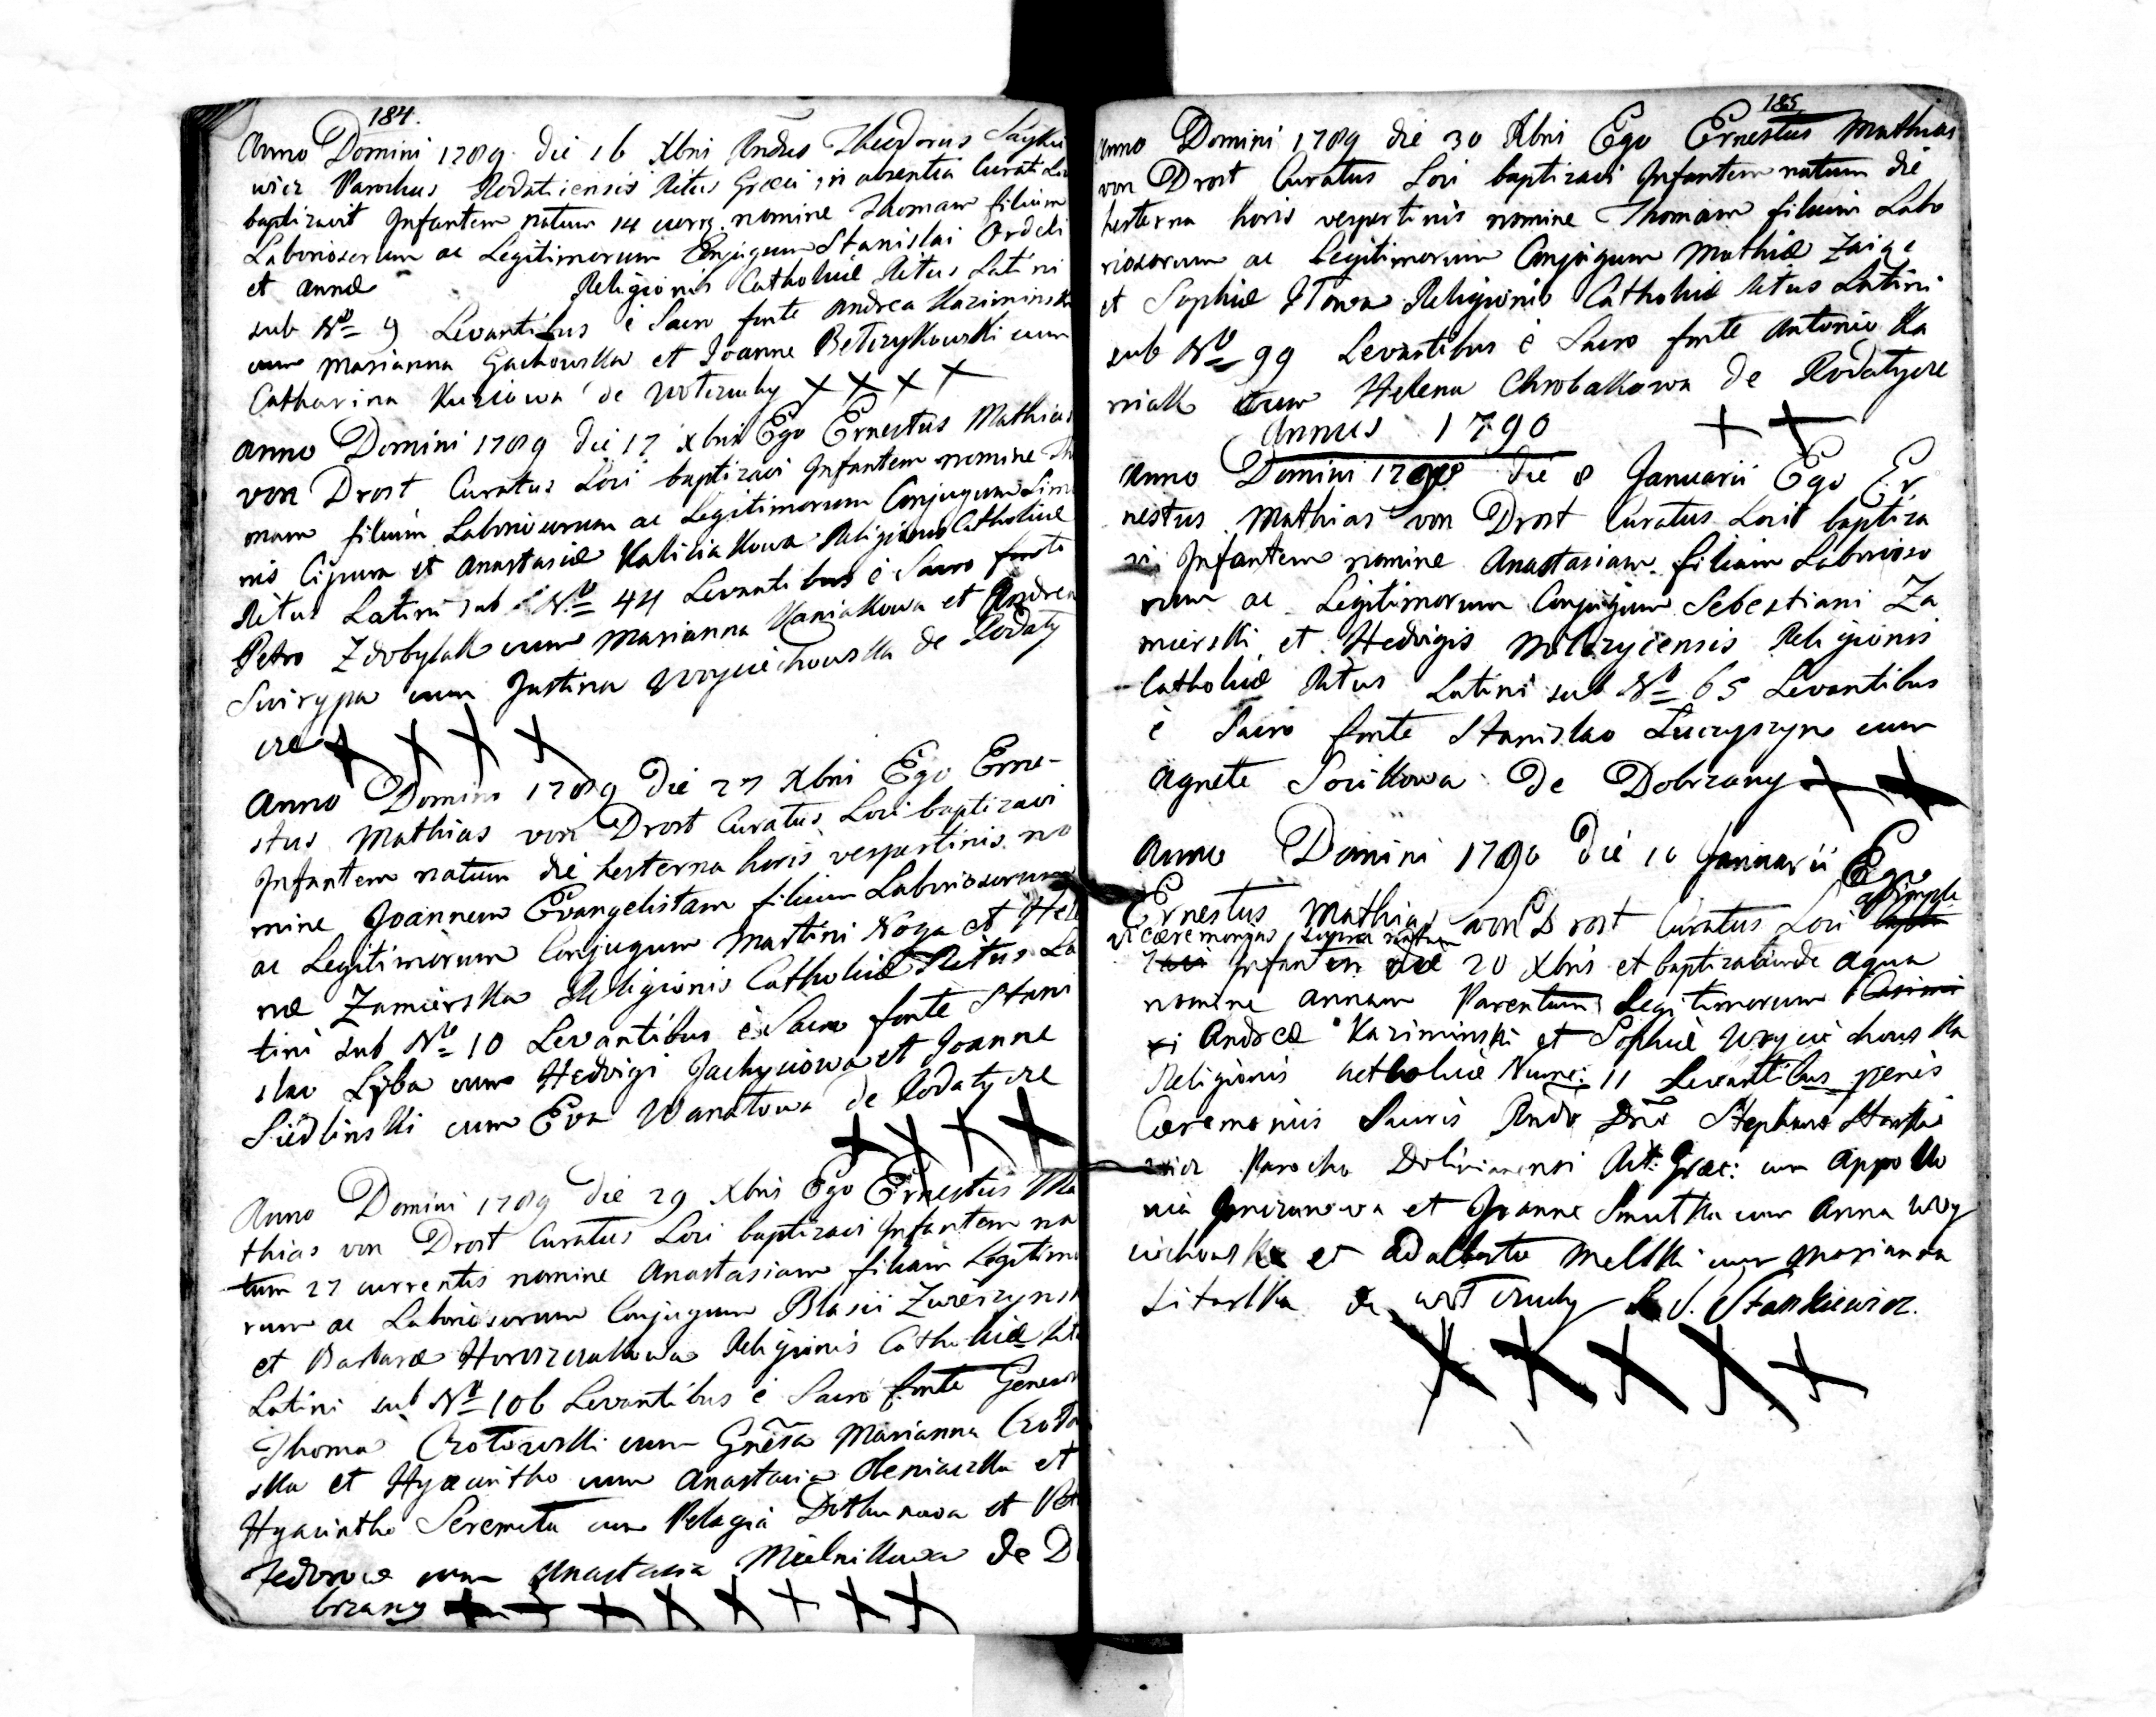 184.
Anno Domini 1789 die 16 Xbris Rndus Theodorus
wicz Parochus Rodaticensis Ritus Graeci in absentia Curati
baptizavit Infantem natum 14 curr. nomine Thomam filium
Laboriosorum ac Legitimorum Conjugum Stanislai
et Annæ Religionis Catholicæ Ritus Latini
sub Nro 9 Levantibus è Sacro fonte Andrea
cum Marianna Gachowska et Joanne Betczykowski cum
Catharina Kuziowa de Wotczuchy ++++
Anno Domini 1789 die 17 Xbris Ego Ernestus Mathias
von Drost Curatus Loci baptizavi Infantem nomine Tho
mam filium Laboriosorum ac Legitimorum Conjugum Simo
nis Cipura et Anastasiæ Kaliciakowa Religionis Catholicæ
Ritus Latini sub Nro 44 Levantibus è Sacro fonte
Petro Zdobylak cum Marianna Kaniakowa et Andrea
Swirypa cum Justina Woyciechowska de Rodaty
cze ++++
Anno Domini 1789 die 27 Xbris Ego Erne-
stus Mathias von Drost Curatus Loci baptizavi
Infantem natum die hesterna horis vespertinis no
mine Joannem Evangelistam filium Laboriosorum
ac Legitimorum Conjugum Martini Noga et Hele
næ Zamierska Religionis Catholicæ Ritus La
tini sub Nro 10 Levantibus è Sacro fonte Stani
slao Lyba cum Hedvigi Jachyciowa et Joanne
Siedlinski cum Eva Wanatowa de Rodatycze
++++
Anno Domini 1789 die 29 Xbris Ego Ernestus Ma
thias von Drost Curatus Loci baptizavi Infantem na
tum 27 currentis nomine Anastasiam filiam Legitimo
rum ac Laboriosorum Conjugum Blasii
et Barbaræ Religionis Catholicæ
Latini sub Nro 106 Levantibus è Sacro fonte
Thoma cum Gnesa Marianna
ska et Hyacintho cum Anastasia Oleniaczka et
Hyacintho Seremeta cum Pelagia et
Fedorow cum Anastasia Mielnikowa de Do
brzany ++++++++
185
Anno Domini 1789 die 30 Xbris Ego Ernestus Mathias
von Drost Curatus Loci baptizavi Infantem natum die
hesterna horis vespertinis nomine Thomam filium Labo
riosorum ac Legitimorum Conjugum Mathiæ Zaige
et Sophiæ Religionis Catholicæ Ritus Latini
sub Nro 99 Levantibus è Sacro fonte Antonio Ka
niak cum Helena Chrobakowa de Rodatycze
Annus 1790 ++
Anno Domini 1790 die 8 Januarii Ego Er
nestus Mathias von Drost Curatus Loci baptiza
vi Infantem nomine Anastasiam filiam Laborioso
rum ac Legitimorum Conjugum Sebestiani Za
mierski et Hedvigis Religionis
Catholicæ Ritus Latini sub Nro 65 Levantibus
è Sacro fonte Stanislao Luczyszyn cum
Agnete Socikowa de Dobrzany ++
Anno Domini 1790 die 10 Januarii Ego
Ernestus Mathias von Drost Curatus Loci
vi cæremonias supra
Infantem 20 Xbris et baptizatam de aqua
nomine Annam Parentum Legitimorum
Andreæ Kaziminski et Sophiæ Woyciechowska
Religionis Catholicæ Nume: 11 Levantibus penes
Cæremoniis Sacris Rndo Dno Stephano
wicz Parocho Rit: Græc: cum Appollo
nia et Joanne Smutka cum Anna Woy
ciechowska et Adalberto Melski cum Marianna
de S. Stankiewicz.
+++++